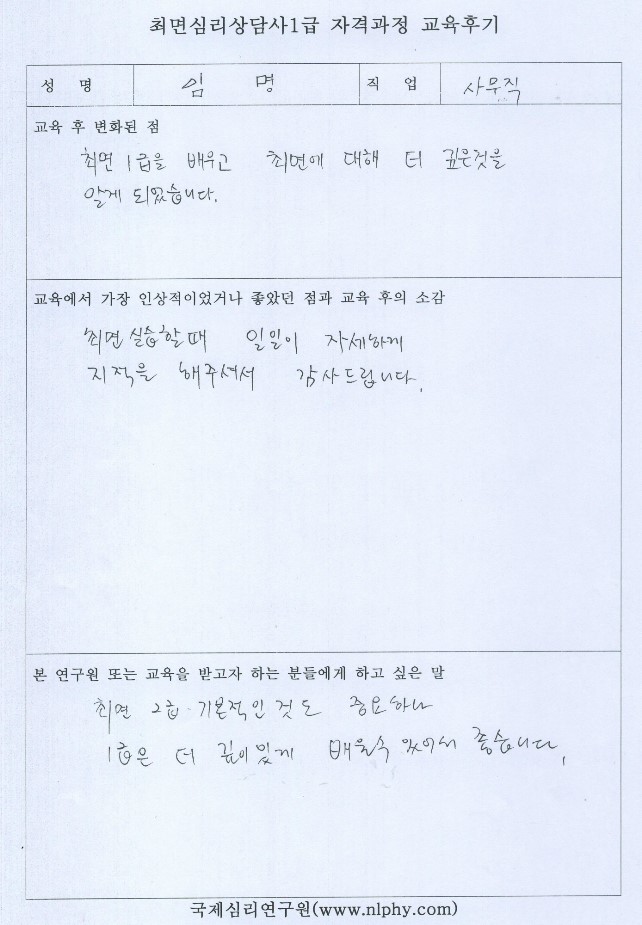 최면심리상담사1급 자격과정 교육후기
성 명 임 명 직 업 사무직
교육 후 변화된 점
최면 1급을 배우고 최면에 대해 더 깊은것을
알게 되었습니다.
교육에서 가장 인상적이었거나 좋았던 점과 교육 후의 소감
최면 실습할때 일일이 자세하게
지적을 해주셔서 감사드립니다.
본 연구원 또는 교육을 받고자 하는 분들에게 하고 싶은 말
최면 2급 기본적인 것도 중요하나
1급은 더 깊이있게 배울수 있어서 좋습니다.
국제심리연구원(www.nlphy.com)